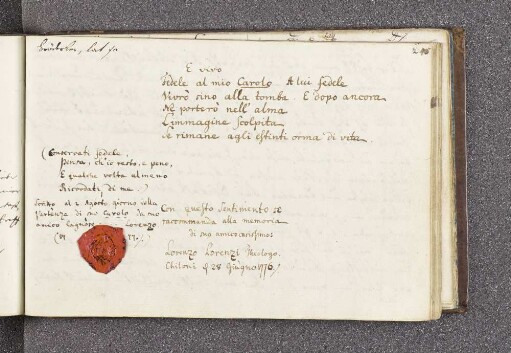 246
E vivo
Fedele al mio Carolo A lui fedele
Morò sino alla tomba. E dopo ancora
Ne porterò nell'alma
L'immagine scolpita
Se rimane agli estinti orma di vita.
(Conservati fedele,
Pensa, ch'io resto, e peno,
E qualche volta almeno
Ricordati di me.)
Scritto al 2 Agosto giorno della
partenza di suo Carolo da suo
amico Lorenzo
Con questo Sentimento se
raccomanda alla memoria
di suo amico carissimo
Lorenzo Lorenzi Theologo.
Chiloni d. 28 Giugno 1776